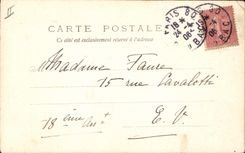 II
CARTE POSTALE
Ce côté est exclusivement réservé à l'adresse
PARIS 80
18 *
24 -4
06
Madame Faure
15 rue Cavalotti
18 ème Arrt
E. V.